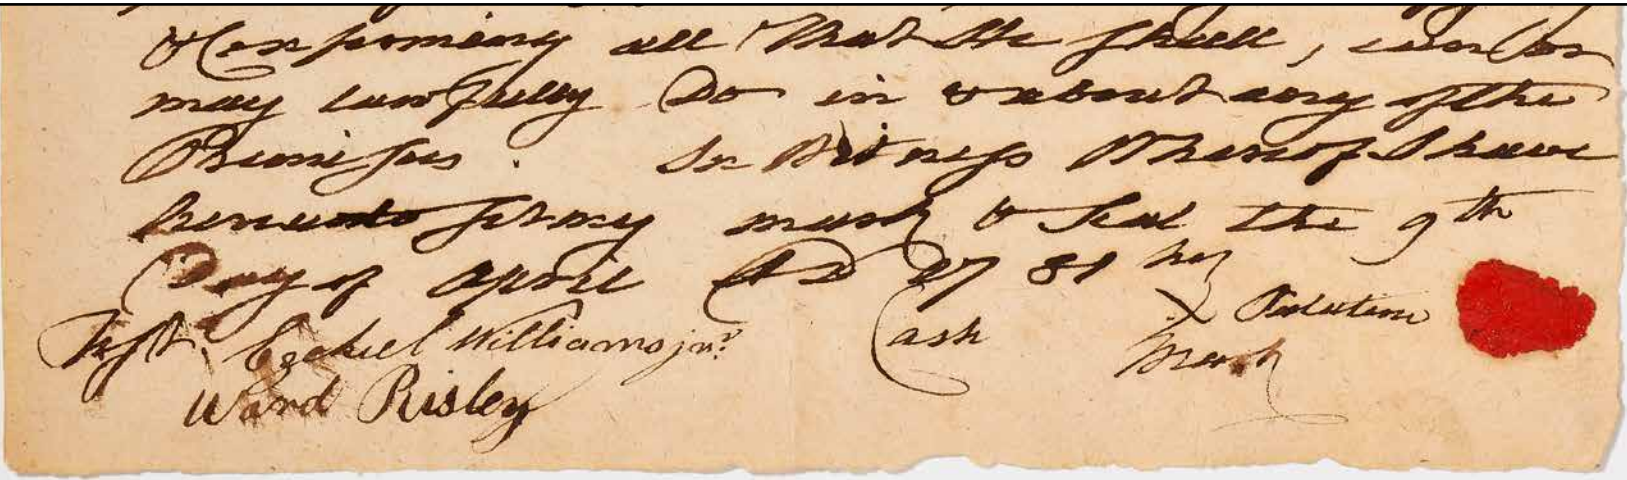 & Confirming all That He shall, can or
may lawfully Do in & about any of the
Premises. In Witness Whereof I have
hereunto set my mark & Seal the 9th
Day of April AD 1781 his
Test. Ezekiel Williams junr. Cash X Palatine
Ward Risley mark